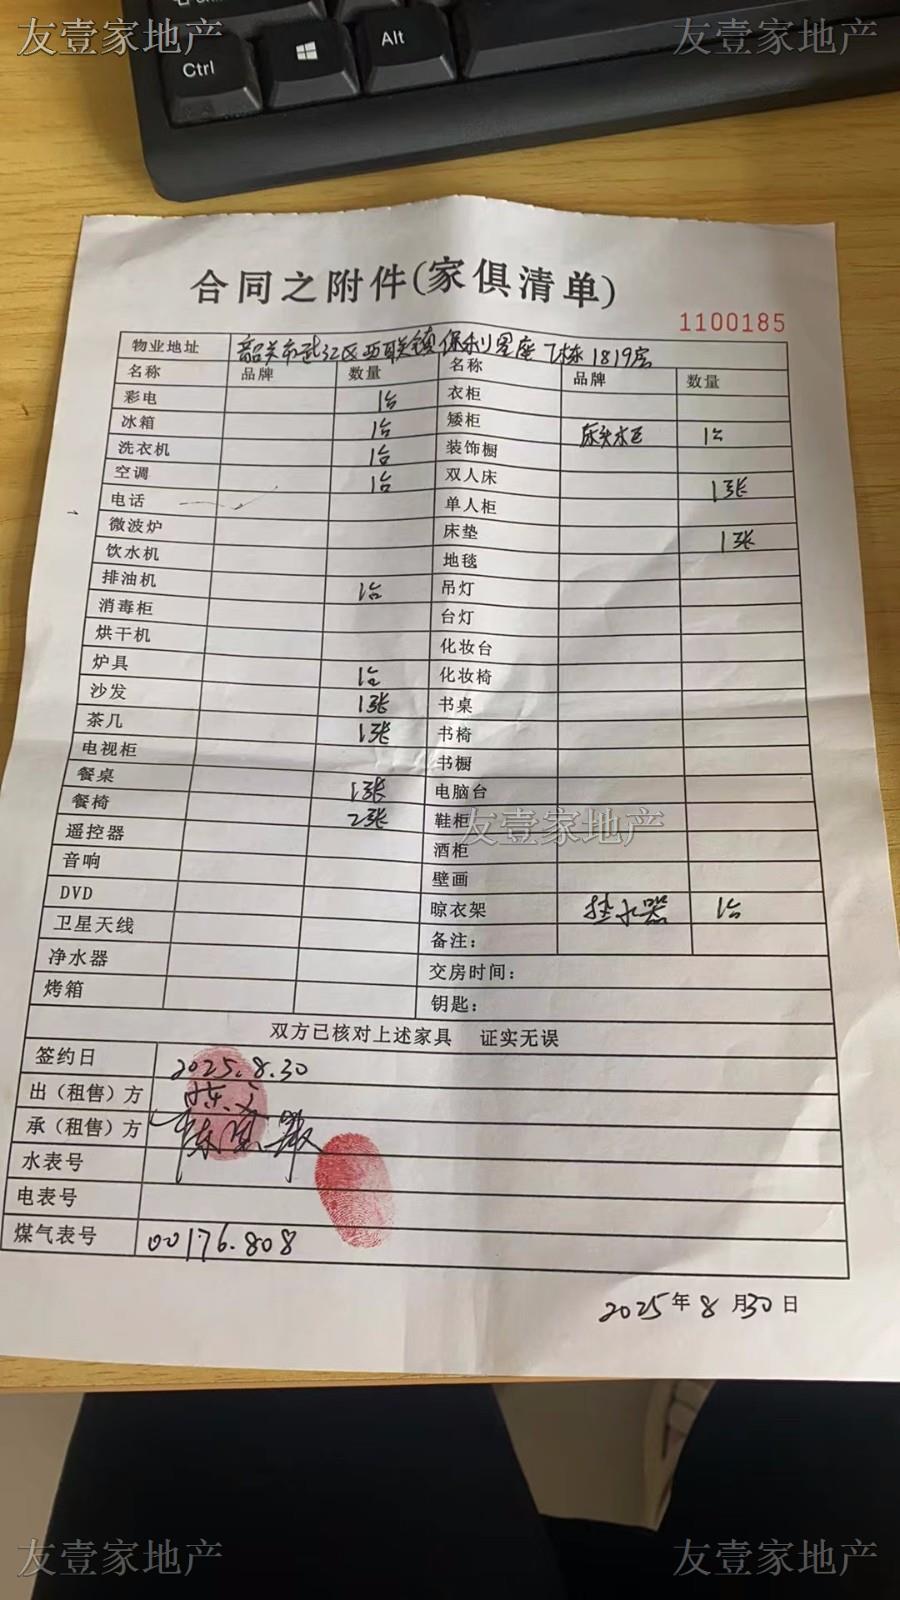 友壹家地产 友壹家地产
Ctrl Alt
合同之附件(家俱清单)
1100185
物业地址 韶关市武江区西联镇保利星座7栋1819房
名称 品牌 数量 名称 品牌 数量
彩电 1台 衣柜
冰箱 1台 矮柜 床头水 1台
洗衣机 1台 装饰橱
空调 1台 双人床 1张
电话 单人柜
微波炉 床垫 1张
饮水机 地毯
排油机 1台 吊灯
消毒柜 台灯
烘干机 化妆台
炉具 1台 化妆椅
沙发 1张 书桌
茶几 1张 书椅
电视柜 书橱
餐桌 1张 电脑台
餐椅 2张 鞋柜
遥控器 酒柜
音响 壁画
DVD 晾衣架 热水器 1台
卫星天线 备注:
净水器 交房时间:
烤箱 钥匙:
双方已核对上述家具 证实无误
签约日 2025.8.30
出（租售）方
承（租售）方 陈
水表号
电表号
煤气表号 00176.808
2025年8月30日
友壹家地产
友壹家地产 友壹家地产